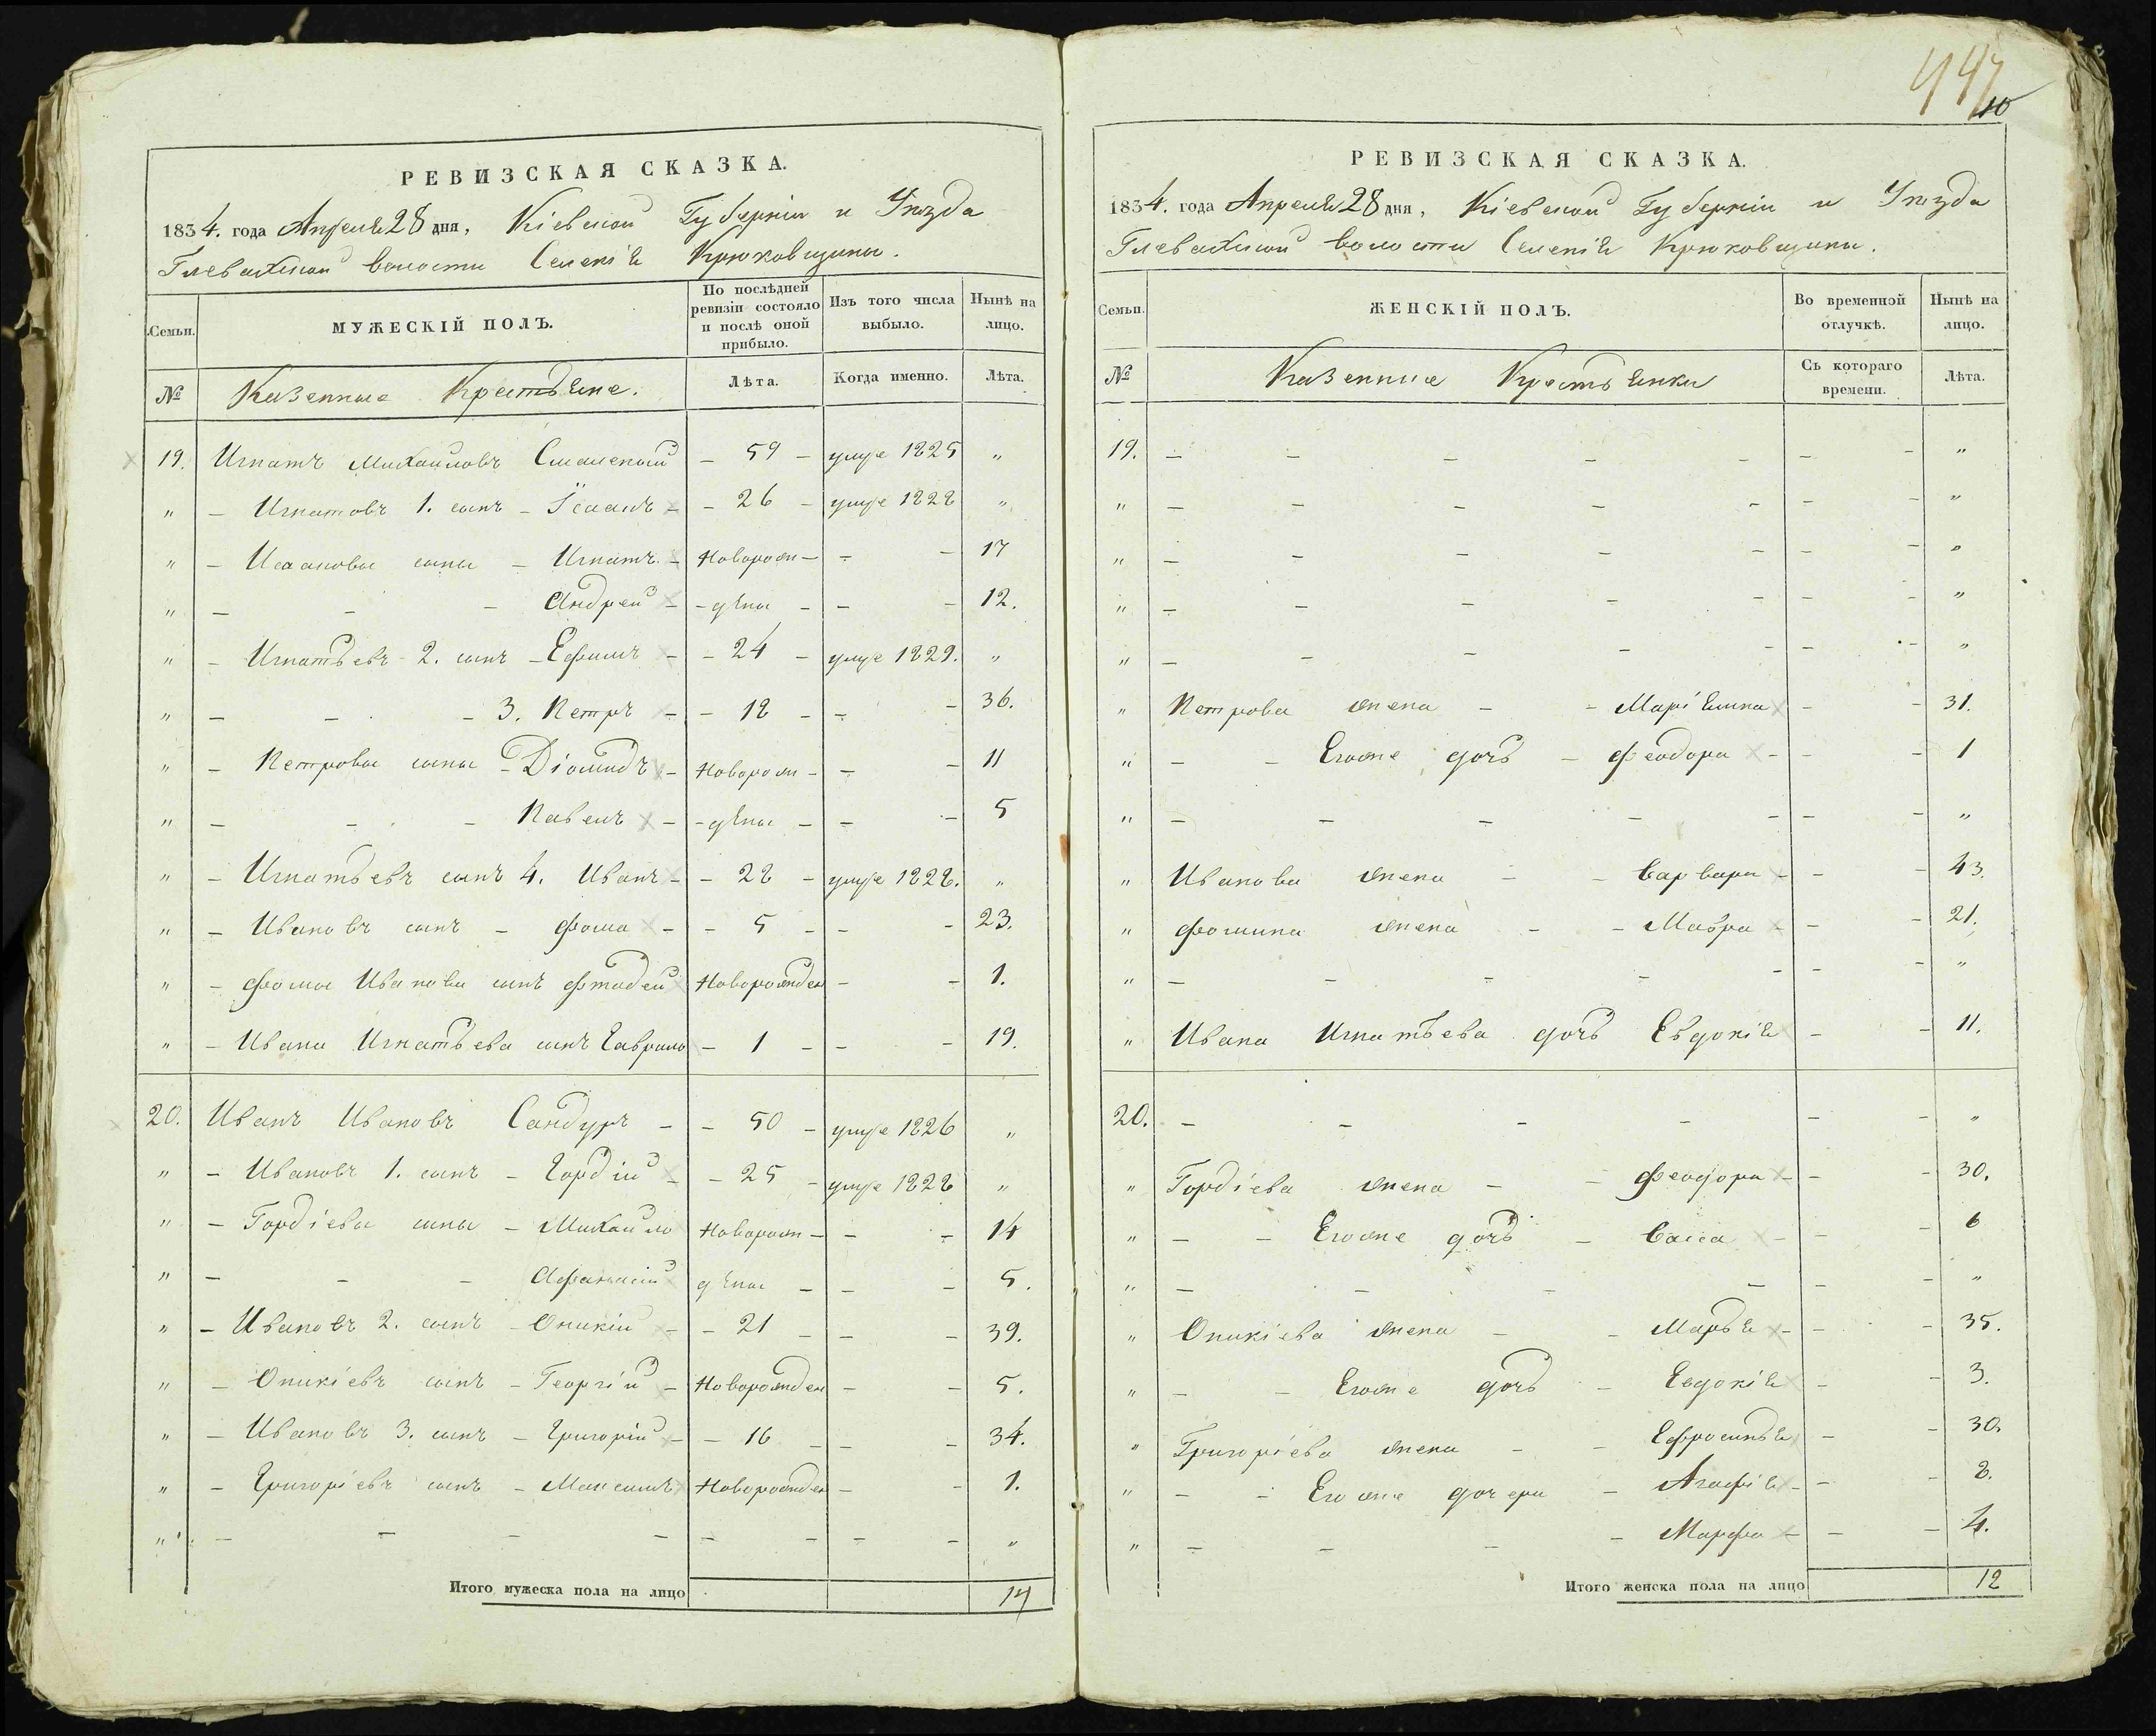 447
10
РЕВИЗСКАЯ СКАЗКА.
1834. года Апреля 28 дня, Кіевской Губерніи и Уѣзда
Глевахской волости Селенія Крюковщины.
Семьи. МУЖЕСКІЙ ПОЛЪ. По послѣдней ревизіи состояло и послѣ оной прибыло. Изъ того числа выбыло. Нынѣ на лицо.
№ Казенные Крестьяне. Лѣта. Когда именно. Лѣта.
19. Игнатъ Михайловъ — 59 — умре 1825 "
" — Игнатовъ 1. сынъ — Ісаакъ — — 26 — умре 1828 "
" — Исааковы сыны — Игнатъ — Новорож — — — 17
" — — — Андрей — — дѣны — — — 12.
" — Игнатьевъ 2. сынъ — Ефимъ — — 24 — умре 1829. "
" — — — 3. Петръ — — 18 — — — 36.
" — Петровы сыны — Dіомидъ — Новорож — — — 11
" — — — Павелъ — — дѣны — — — 5
" — Игнатьевъ сынъ 4. Иванъ — — 28 — умре 1828. "
" — Ивановъ сынъ — Фома — — 5 — — — 23.
" — Фомы Иванова сынъ Фтадей Новорожден — — 1.
" — Ивана Игнатьева сынъ Гаврило — 1 — — — 19.
20. Иванъ Ивановъ Сандуръ — — 50 — умре 1826 "
" — Ивановъ 1. сынъ — Гордій — — 25 — умре 1828 "
" — Гордіевы сыны — Михайло Новорож — — — 14
" — — — Афанасій дѣны — — — 5.
" — Ивановъ 2. сынъ — Оникій — — 21 — — — 39.
" — Оникіевъ сынъ — Георгій — Новорожден — — 5.
" — Ивановъ 3. сынъ — Григорій — — 16 — — — 34.
" — Григоріевъ сынъ — Максимъ Новорожден — — 1.
" — — — — — — — — "
Итого мужеска пола на лицо 14
РЕВИЗСКАЯ СКАЗКА.
1834. года Апреля 28 дня, Кіевской Губерніи и Уѣзда
Глевахской волости Селенія Крюковщины.
Семьи. ЖЕНСКІЙ ПОЛЪ. Во временной отлучкѣ. Нынѣ на лицо.
№ Казенные Крестьянки Съ котораго времени. Лѣта.
19. — — — — — — — "
" — — — — — — — "
" — — — — — — — "
" — — — — — — — "
" — — — — — — — "
" Петрова жена — — Маріянна — — 31.
" — — Егоже дочь — Феодора — — — 1
" — — — — — — — "
" Иванова жена — — Варвара — — — 43.
" Фомина жена — — Мавра — — — 21.
" — — — — — — — "
" Ивана Игнатьева дочь Евдокія — — 11.
20. — — — — — — "
" Гордіева жена — — Феодора — — — 30.
" — — Егоже дочь — Васса — — — 6
" — — — — — — "
" Оникіева жена — — Марья — — — 35.
" — — Егоже дочь — Евдокія — — 3.
" Григоріева жена — — Ефросинья — — 30.
" — — Егоже дочери — Агафія — — — 8.
" — — — — Марфа — — — 4.
Итого женска пола на лицо 12